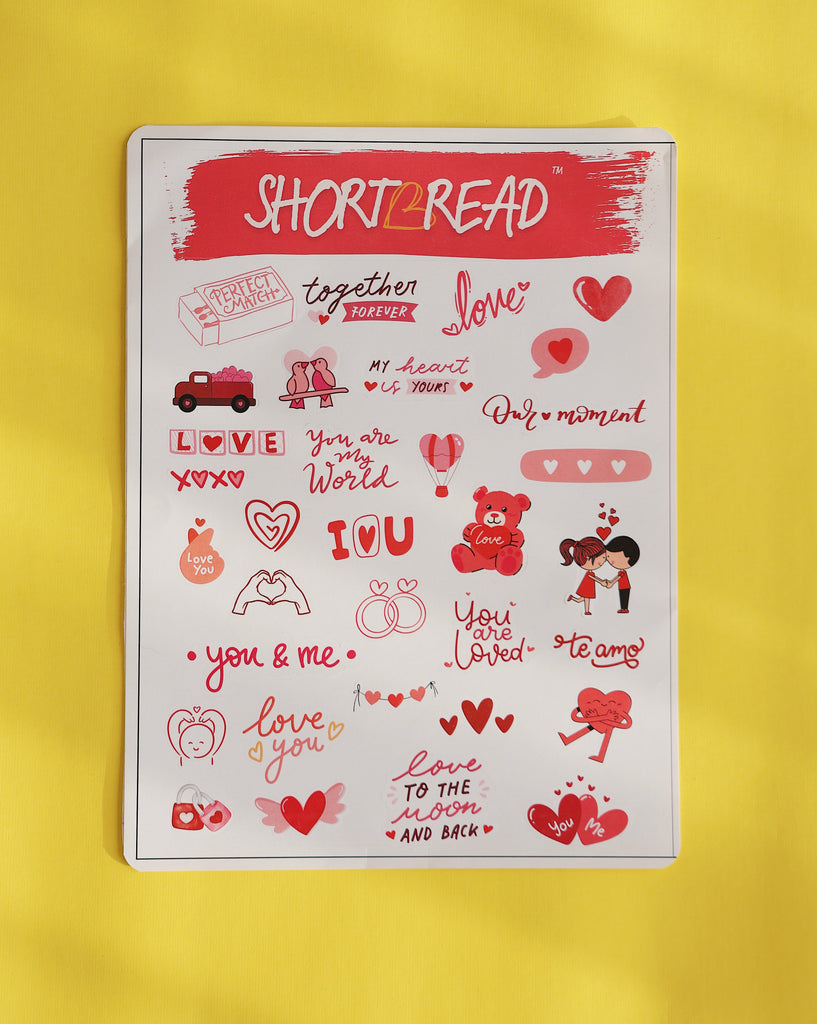 SHORTBREAD™
PERFECT
MATCH
together
FOREVER
love
MY heart
is YOURS
Our moment
LOVE
XOXO
You are
My
World
I U
love
Love
You
You
are
Loved
te amo
you & me
love
you
love
TO THE
moon
AND BACK
You
Me